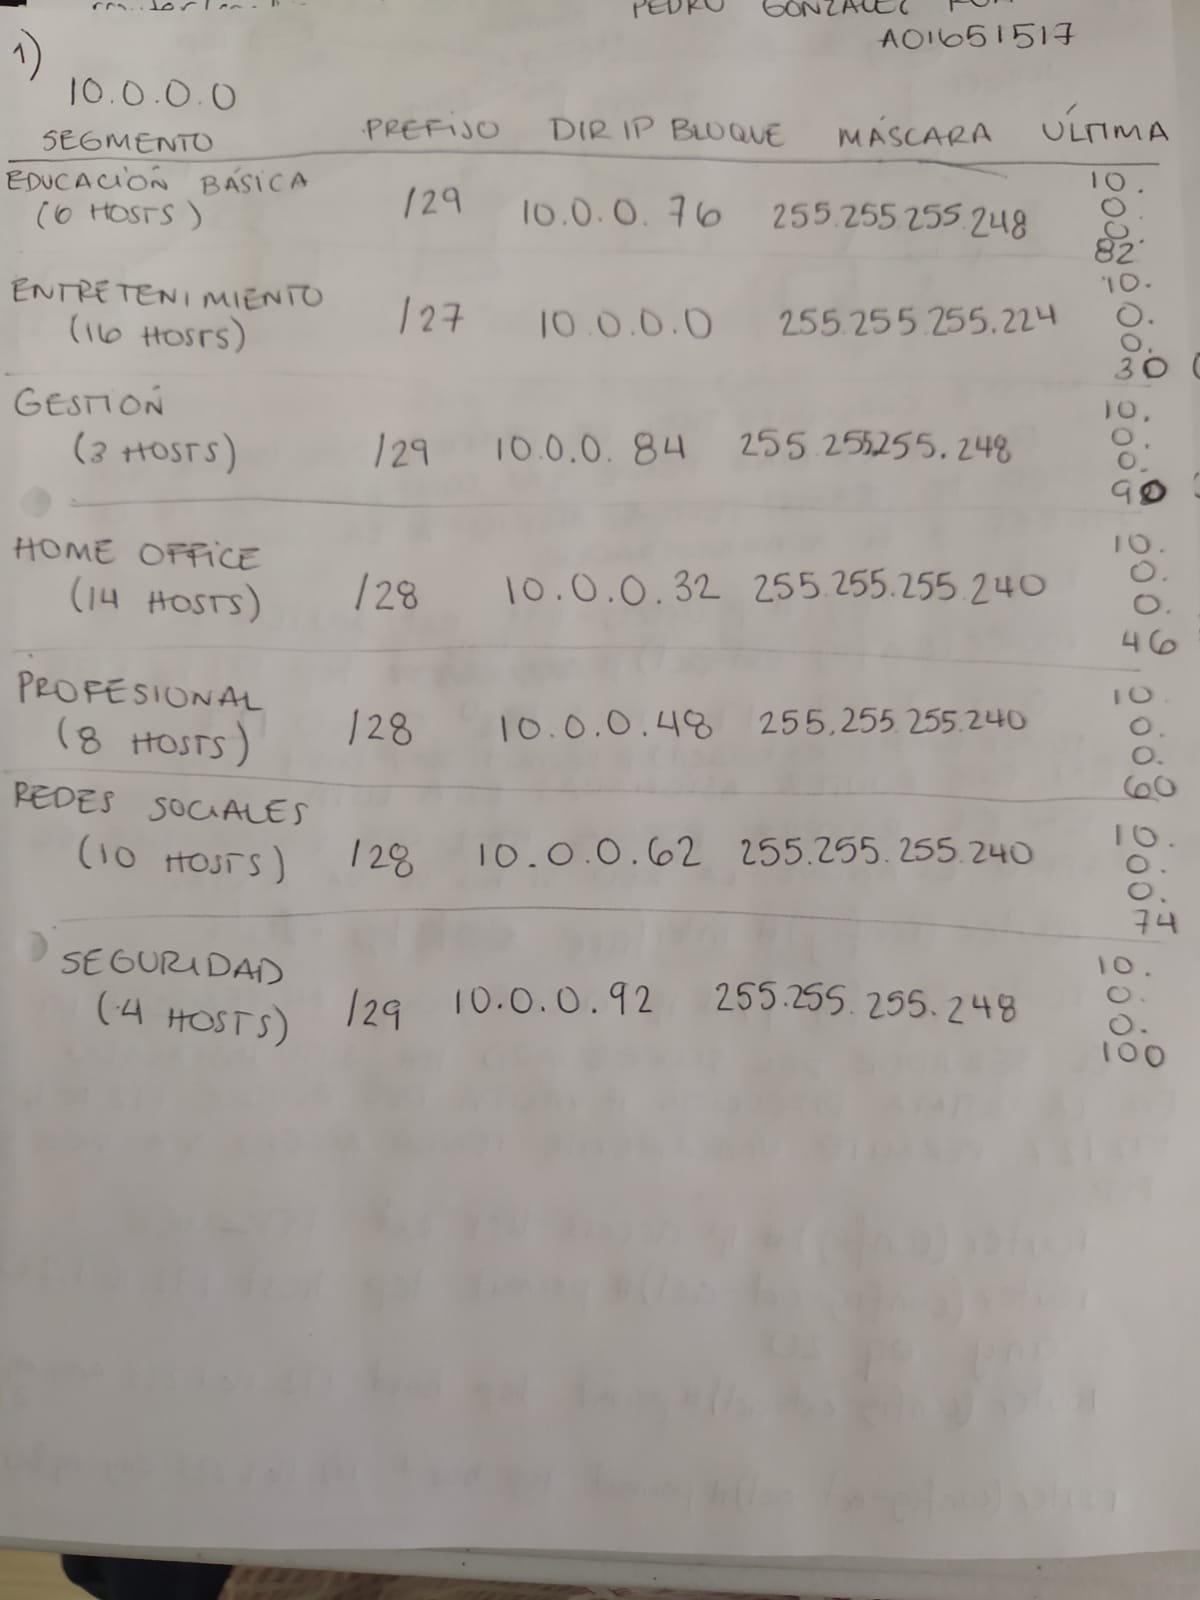 PEDRO GONZALEZ
A01651517
1)
10.0.0.0
SEGMENTO PREFIJO DIR IP BLOQUE MÁSCARA ÚLTIMA
EDUCACIÓN BÁSICA (6 HOSTS) /29 10.0.0.76 255.255.255.248 10.0.0.82
ENTRETENIMIENTO (16 HOSTS) /27 10.0.0.0 255.255.255.224 10.0.0.30
GESTIÓN (3 HOSTS) /29 10.0.0.84 255.255.255.248 10.0.0.90
HOME OFFICE (14 HOSTS) /28 10.0.0.32 255.255.255.240 10.0.0.46
PROFESIONAL (8 HOSTS) /28 10.0.0.48 255.255.255.240 10.0.0.60
REDES SOCIALES (10 HOSTS) /28 10.0.0.62 255.255.255.240 10.0.0.74
SEGURIDAD (4 HOSTS) /29 10.0.0.92 255.255.255.248 10.0.0.100